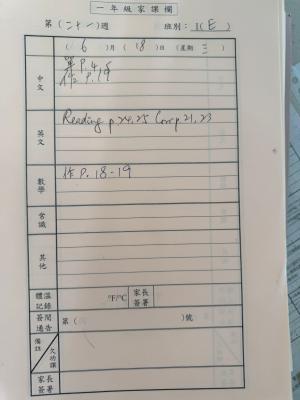 一年級家課欄
第（二十一）週 班別：1(E)
（6）月（18）日（星期三）
中文
P.4,5
作2 P.19
英文
Reading p24,25 Corr p.21,23
數學
作 P.18-19
常識
其他
體溫記錄
°F/°C
家長簽署
簽閱通告
第（ ）號
備註
欠功課
家長簽署